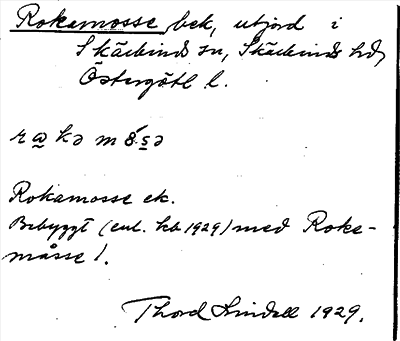 Rokamosse bek, utjord i
Skärkinds sn, Skärkinds hd,
Östergötl l.
Rokamosse ek.
Bebyggt (enl. kb 1929) med Roke-
måsse 1.
Thord Lindell 1929.